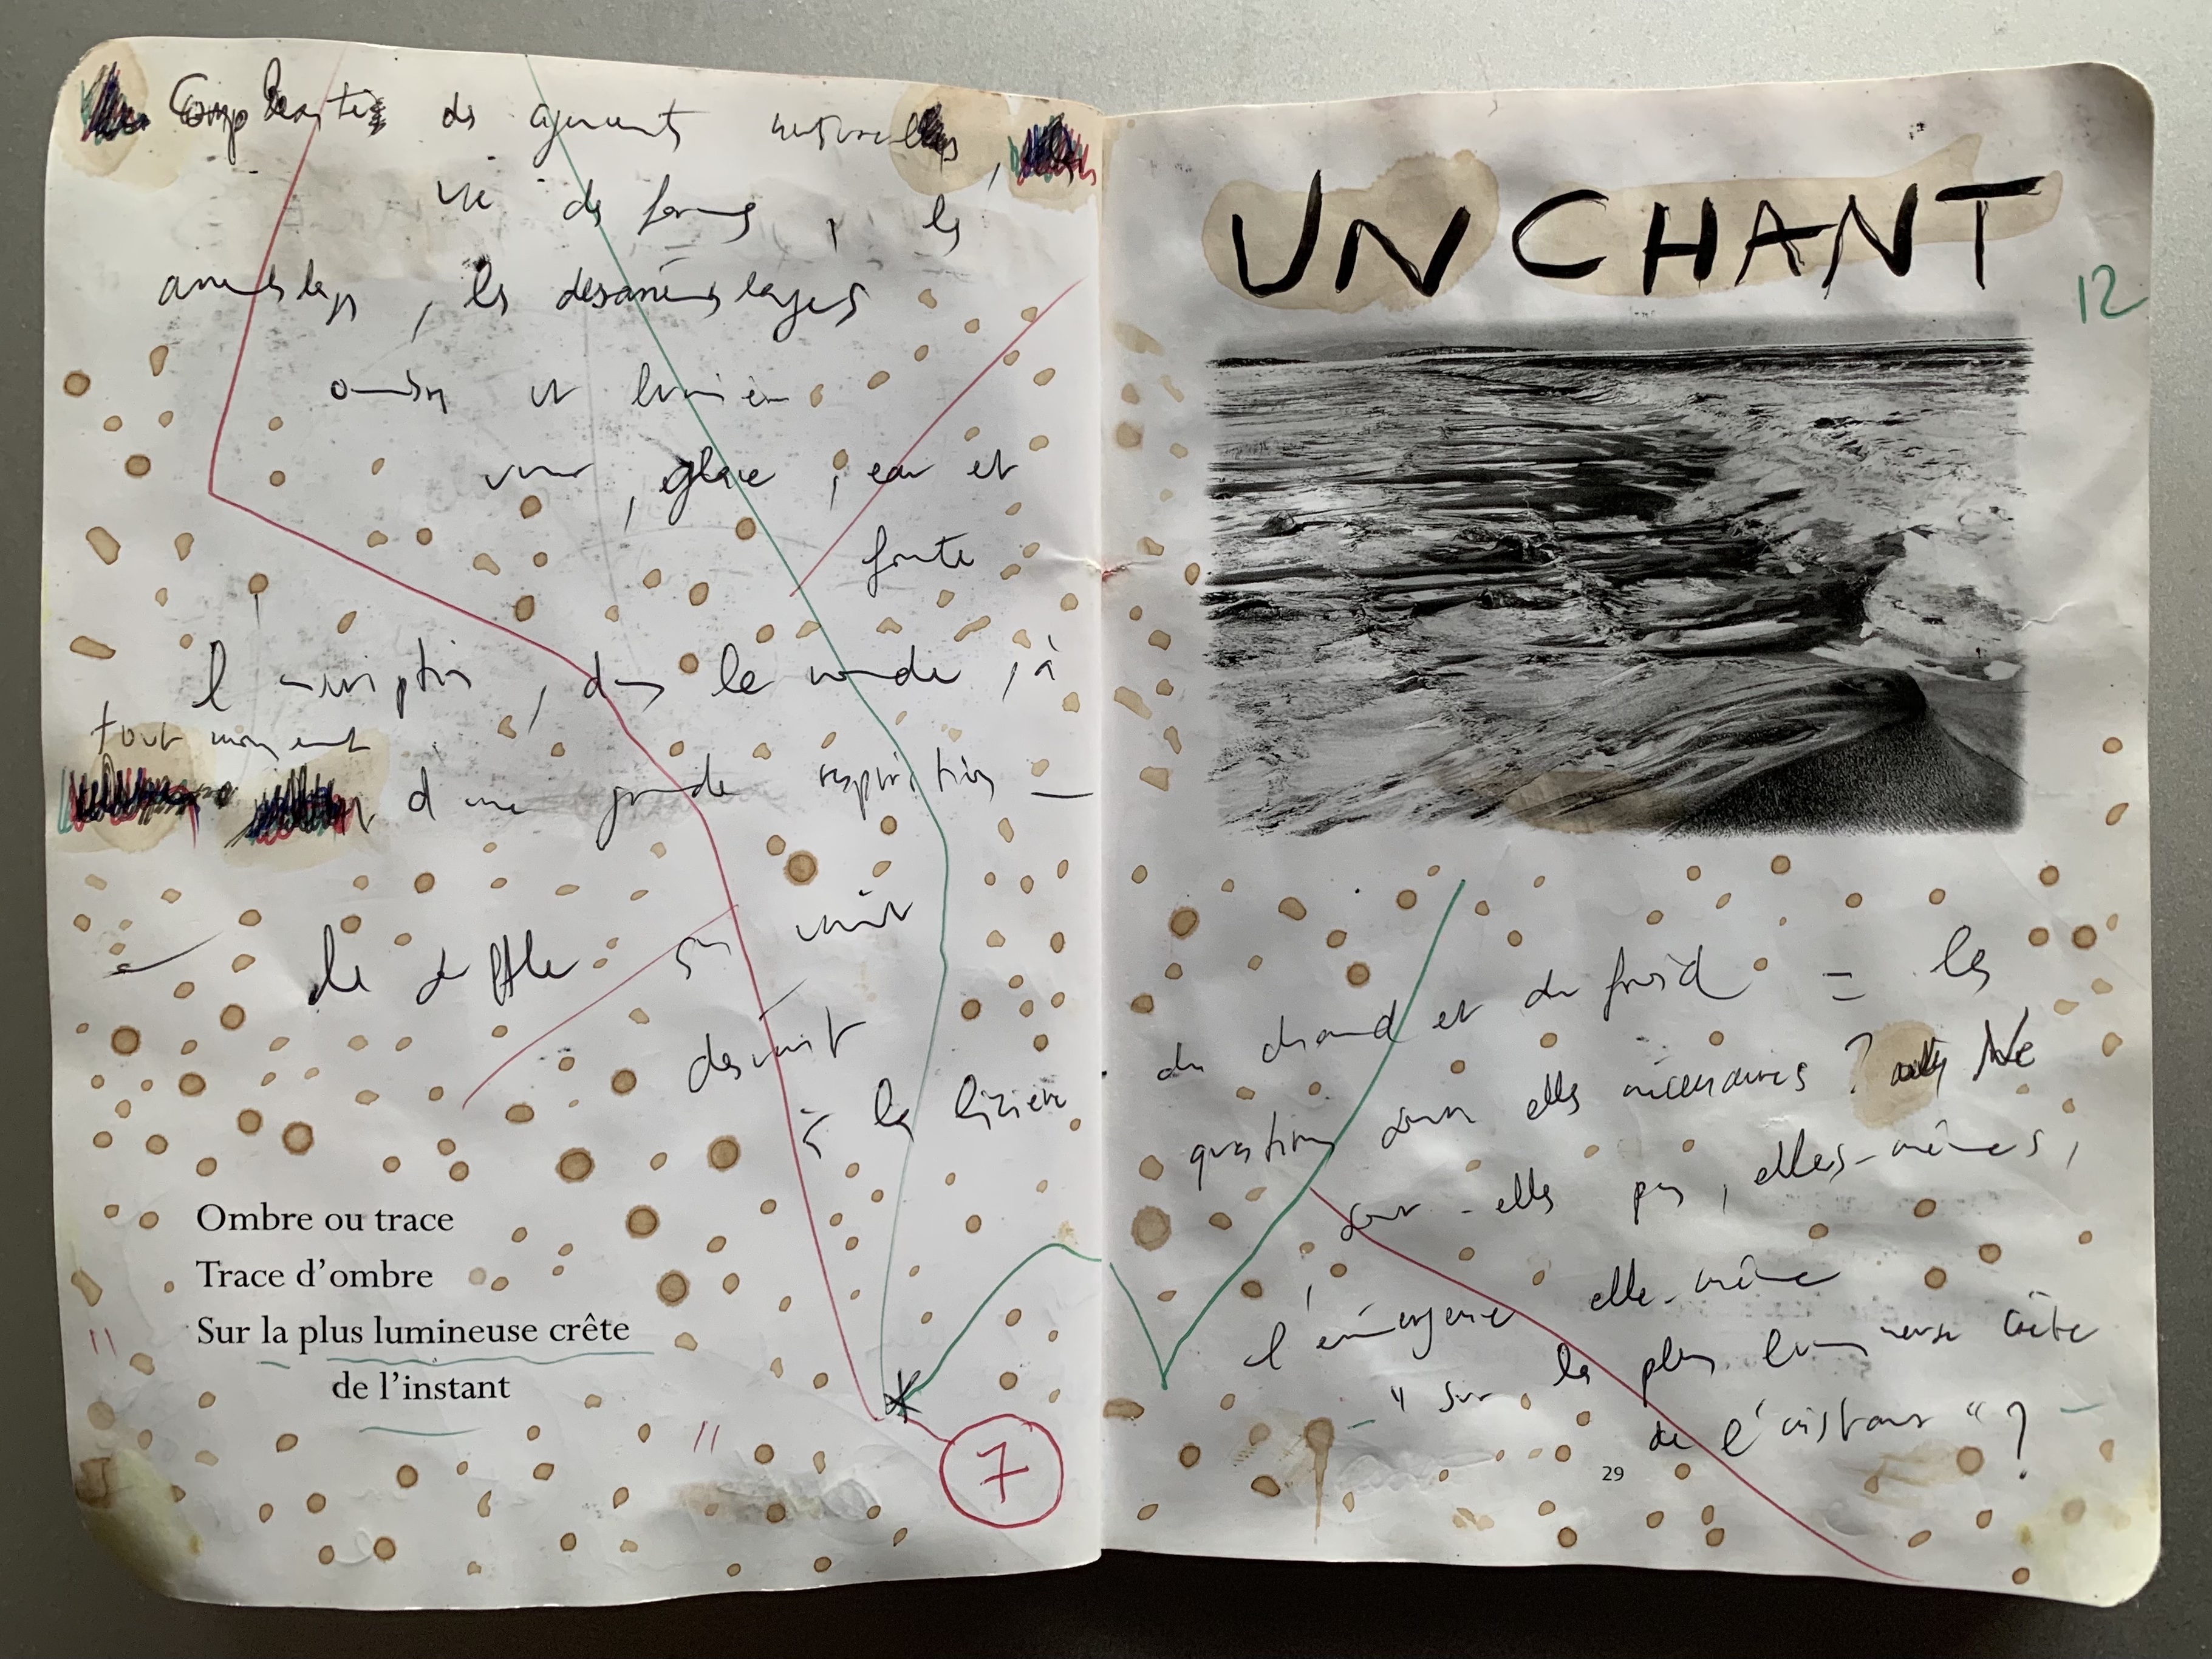 Complexités des agencements
vie des formes, les
assemblages, les désassemblages
ombre et lumière
, glace, eau et
fonte
l'inscription, dans le monde, à
tout moment
d'une grande respiration —
— le souffle
à la lisière
Ombre ou trace
Trace d'ombre
Sur la plus lumineuse crête
de l'instant
7
UN CHANT
12
du chaud et du froid = les
questions sont elles nécessaires ? Ne
sont-elles pas, elles-mêmes,
l'émergence elle-même
"sur la plus lumineuse crête
de l'instant" ?
29